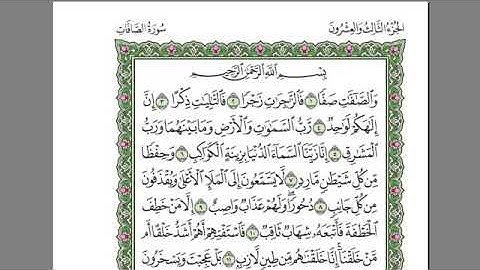 الجُزْءُ الثَّالِثُ وَالعِشْرُونَ
سُورَةُ الصَّافَّاتِ
بِسْمِ اللَّهِ الرَّحْمَٰنِ الرَّحِيمِ
وَالصَّٰٓفَّٰتِ صَفًّا ١ فَالزَّٰجِرَٰتِ زَجْرًا ٢ فَالتَّٰلِيَٰتِ ذِكْرًا ٣ إِنَّ
إِلَٰهَكُمْ لَوَٰحِدٌ ٤ رَّبُّ السَّمَٰوَٰتِ وَالْأَرْضِ وَمَا بَيْنَهُمَا وَرَبُّ
الْمَشَٰرِقِ ٥ إِنَّا زَيَّنَّا السَّمَآءَ الدُّنْيَا بِزِينَةٍ الْكَوَاكِبِ ٦ وَحِفْظًا
مِّن كُلِّ شَيْطَٰنٍ مَّارِدٍ ٧ لَّا يَسَّمَّعُونَ إِلَى الْمَلَإِ الْأَعْلَىٰ وَيُقْذَفُونَ
مِن كُلِّ جَانِبٍ ٨ دُحُورًا ۖ وَلَهُمْ عَذَابٌ وَاصِبٌ ٩ إِلَّا مَنْ خَطِفَ
الْخَطْفَةَ فَأَتْبَعَهُۥ شِهَابٌ ثَاقِبٌ ١٠ فَاسْتَفْتِهِمْ أَهُمْ أَشَدُّ خَلْقًا أَم
مَّنْ خَلَقْنَآ ۚ إِنَّا خَلَقْنَٰهُم مِّن طِينٍ لَّازِبٍۭ ١١ بَلْ عَجِبْتَ وَيَسْخَرُونَ